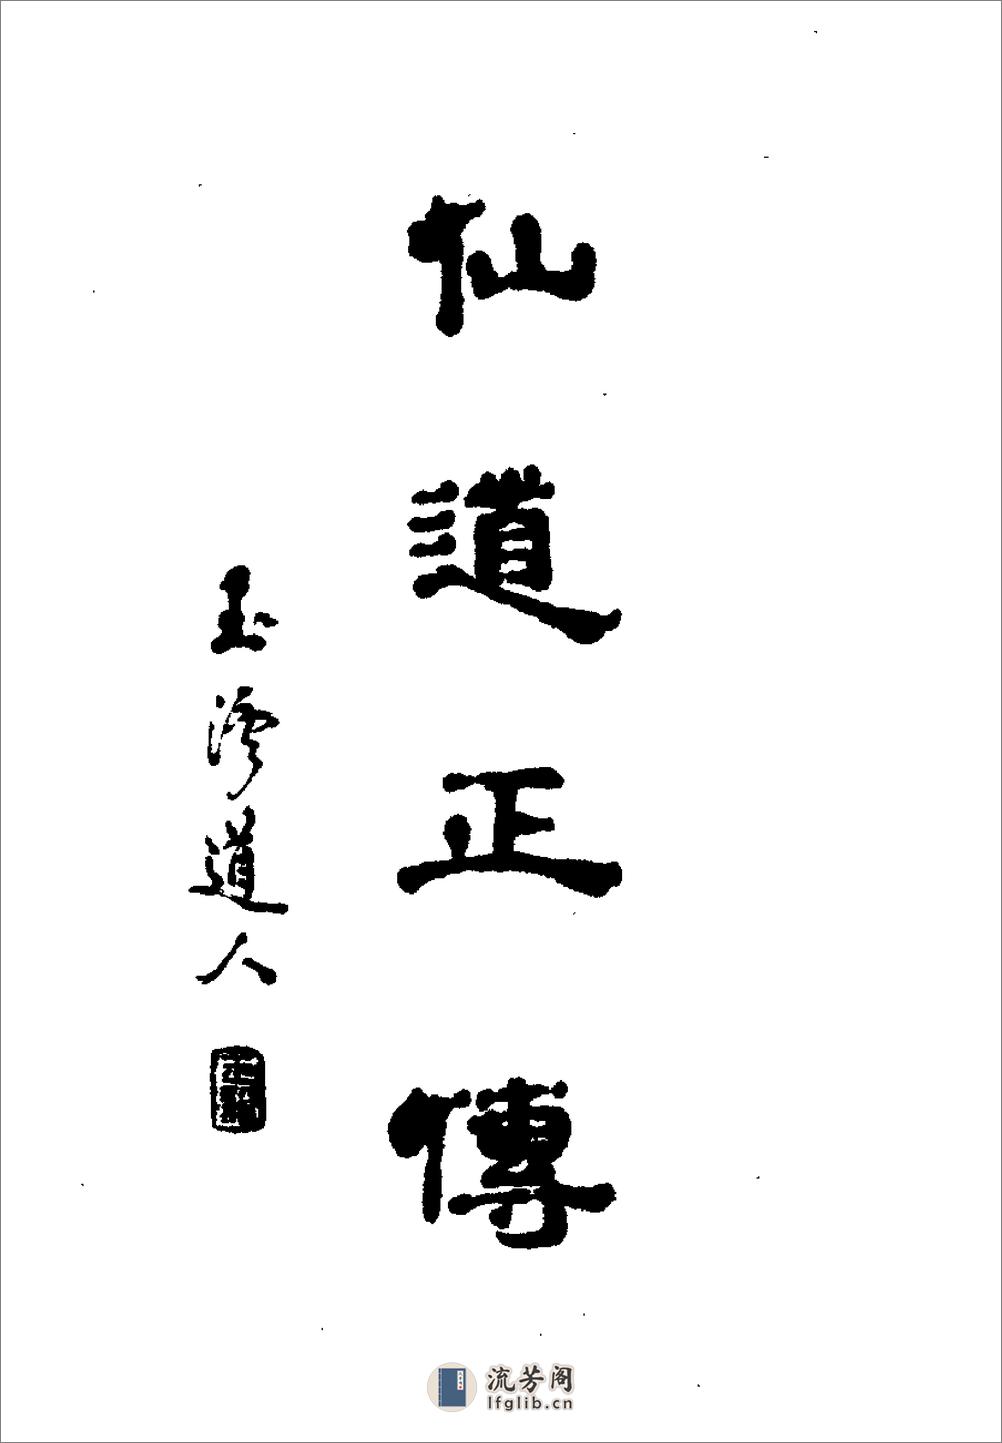 仙道正傳
玉溪道人
流芳阁
lfglib.cn